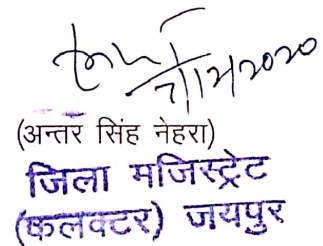 7/12/2020
(अन्तर सिंह नेहरा)
जिला मजिस्ट्रेट
(कलक्टर) जयपुर